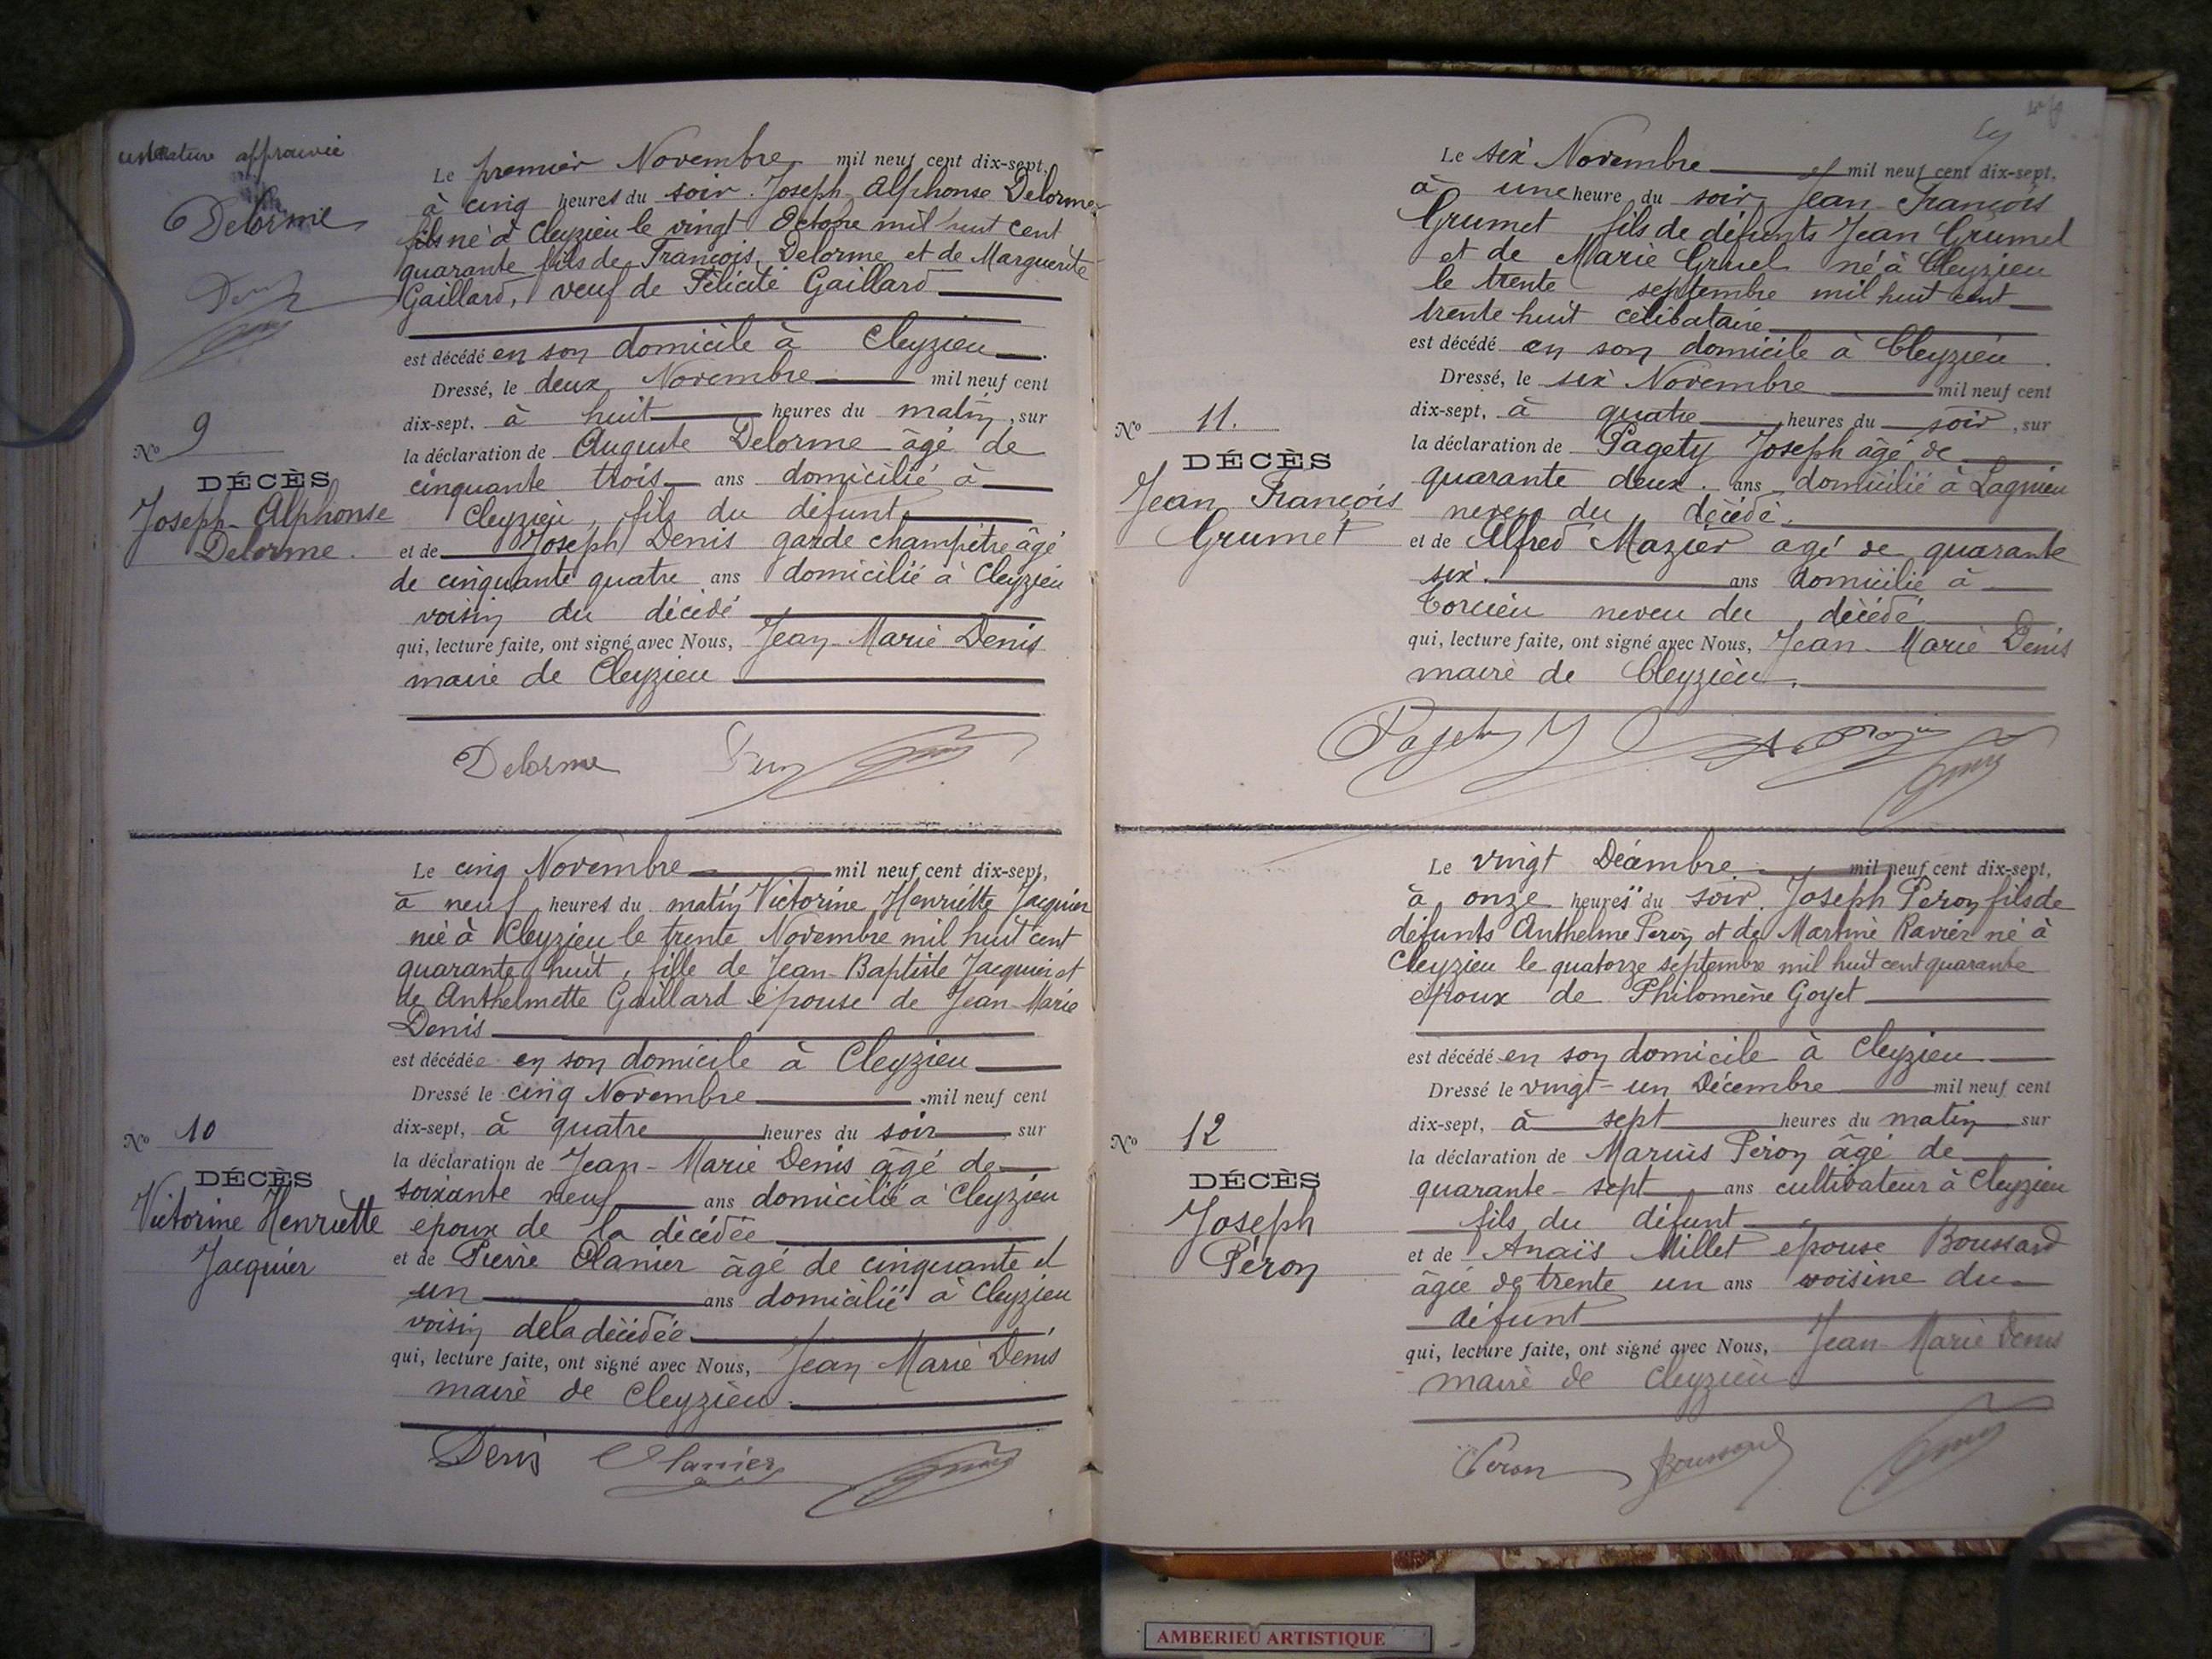 rature approuvée
Delorme
Le premier Novembre mil neuf cent dix-sept,
à cinq heures du soir. Joseph-Alphonse Delorme
fils né à Cleyzieu le vingt Octobre mil huit cent
quarante fils de François Delorme et de Marguerite
Gaillard, veuf de Félicité Gaillard
est décédé en son domicile à Cleyzieu.
Dressé, le deux Novembre mil neuf cent
dix-sept, à huit heures du matin, sur
la déclaration de Auguste Delorme âgé de
cinquante trois ans domicilié à
Cleyzieu, fils du défunt
et de Joseph Denis garde champêtre âgé
de cinquante quatre ans domicilié à Cleyzieu
voisin du décédé
qui, lecture faite, ont signé avec Nous, Jean-Marie Denis
maire de Cleyzieu
Delorme
No 9
DÉCÈS
Joseph-Alphonse
Delorme.
Le cinq Novembre mil neuf cent dix-sept,
à neuf heures du matin Victorine Henriette Jacquier
née à Cleyzieu le trente Novembre mil huit cent
quarante huit, fille de Jean-Baptiste Jacquier et
de Anthelmette Gaillard épouse de Jean-Marie
Denis
est décédée en son domicile à Cleyzieu
Dressé le cinq Novembre mil neuf cent
dix-sept, à quatre heures du soir, sur
la déclaration de Jean-Marie Denis âgé de
soixante neuf ans domicilié à Cleyzieu
époux de la décédée
et de Pierre Olanier âgé de cinquante et
un ans domicilié à Cleyzieu
voisin de la décédée
qui, lecture faite, ont signé avec Nous, Jean Marie Denis
maire de Cleyzieu.
Denis Olanier
No 10
DÉCÈS
Victorine Henriette
Jacquier
Le six Novembre mil neuf cent dix-sept,
à une heure du soir Jean-François
Grumet fils de défunts Jean Grumet
et de Marie Gruel né à Cleyzieu
le trente septembre mil huit cent
trente huit célibataire
est décédé en son domicile à Cleyzieu.
Dressé, le six Novembre mil neuf cent
dix-sept, à quatre heures du soir, sur
la déclaration de Pagety Joseph âgé de
quarante deux. ans domicilié à Lagnieu
neveu du décédé.
et de Alfred Mazier agé de quarante
six. ans domicilié à
Torcieu neveu du décédé
qui, lecture faite, ont signé avec Nous, Jean-Marie Denis
maire de Cleyzieu.
Pagety J
No 11.
DÉCÈS
Jean François
Grumet
Le vingt Décembre mil neuf cent dix-sept,
à onze heures du soir. Joseph Péron fils de
défunts Anthelme Peron et de Martine Ravier né à
Cleyzieu le quatorze septembre mil huit cent quarante
époux de Philomène Goyet
est décédé en son domicile à Cleyzieu.
Dressé le vingt-un Décembre mil neuf cent
dix-sept, à sept heures du matin sur
la déclaration de Marius Péron âgé de
quarante-sept ans cultivateur à Cleyzieu
fils du défunt
et de Anaïs Millet épouse Boussard
âgée de trente un ans voisine du
défunt
qui, lecture faite, ont signé avec Nous, Jean-Marie Denis
maire de Cleyzieu
Peron Boussard
No 12
DÉCÈS
Joseph
Péron
AMBERIEU ARTISTIQUE